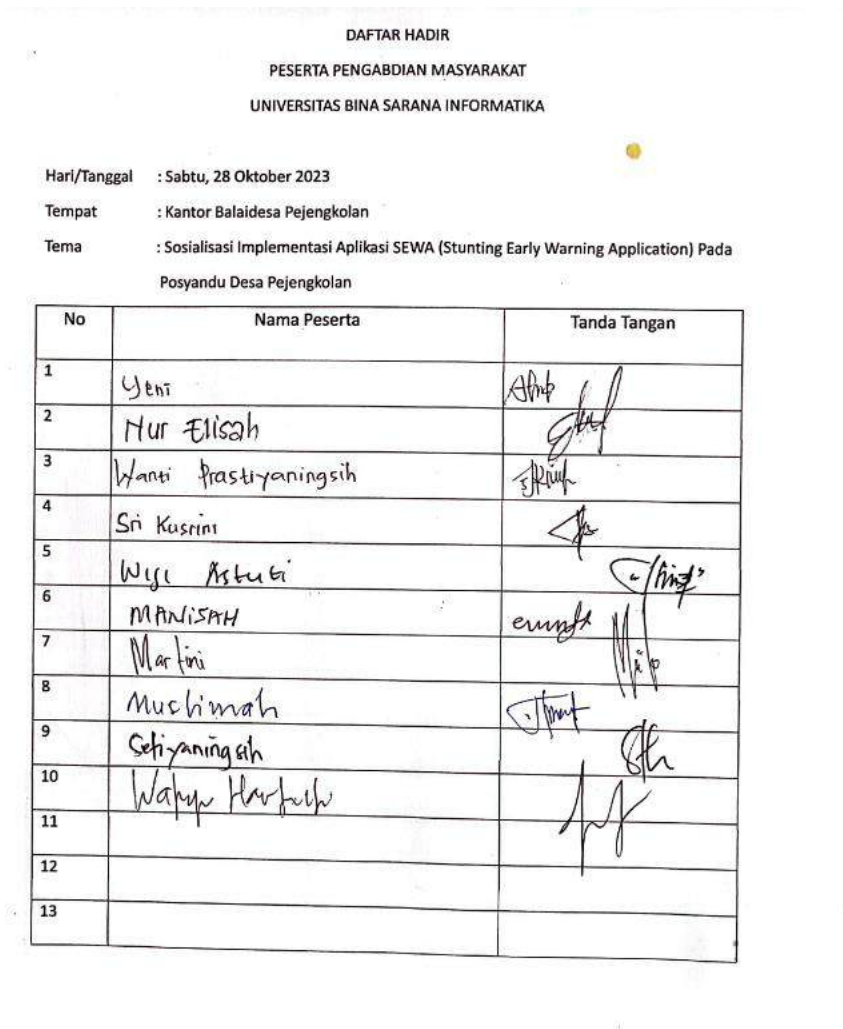 DAFTAR HADIR
PESERTA PENGABDIAN MASYARAKAT
UNIVERSITAS BINA SARANA INFORMATIKA
Hari/Tanggal : Sabtu, 28 Oktober 2023
Tempat : Kantor Balaidesa Pejengkolan
Tema : Sosialisasi Implementasi Aplikasi SEWA (Stunting Early Warning Application) Pada
Posyandu Desa Pejengkolan
No Nama Peserta Tanda Tangan
1 Yeni
2 Nur Elisah
3 Wanti Prastiyaningsih
4 Sri Kusrini
5 Wigi Astuti
6 MANISAH
7 Martini
8 Muslimah
9 Setiyaningsih
10 Wahyu
11
12
13